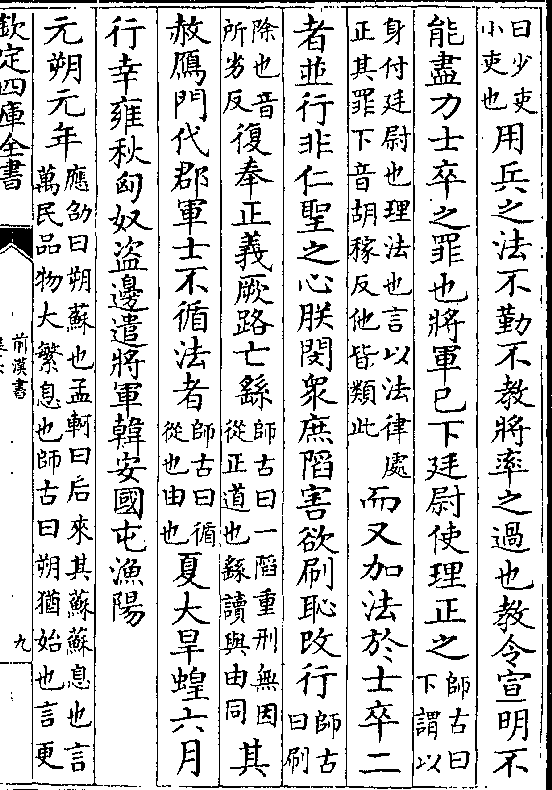 曰少吏
小吏也
用兵之法不勤不教將率之過也教令宣明不
能盡力士卒之罪也將軍已下廷尉使理正之
師古曰
下謂以
身付廷尉也理法也言以法律處
正其罪下音胡稼反他皆類此
而又加法於士卒二
者並行非仁聖之心朕閔衆庶陷害欲刷恥改行
師古
曰刷
除也音
所劣反
復奉正義厥路亡繇
師古曰一陷重刑無因
從正道也繇讀與由同
其
赦鴈門代郡軍士不循法者
師古曰循
從也由也
夏大旱蝗六月
行幸雍秋匈奴盜邊遣將軍韓安國屯漁陽
元朔元年
應劭曰朔蘇也孟軻曰后來其蘇蘇息也言
萬民品物大繁息也師古曰朔猶始也言更
欽定四庫全書
前漢書
卷六
九